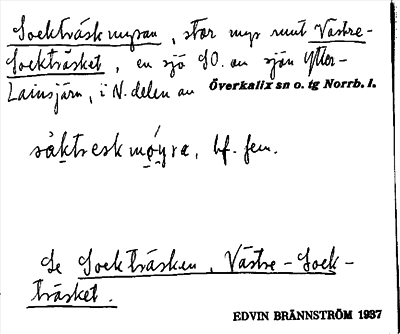 Sockträskmyran, stor myr runt Västre-
Sockträsket, en sjö SO. om sjön Ytter-
Lainsjärv, i N. delen av Överkalix sn o. tg Norrb. l.
såktreskmǫ́yra, bf. fem.
Se Sockträsken, Västre-Sock-
träsket.
EDVIN BRÄNNSTRÖM 1937